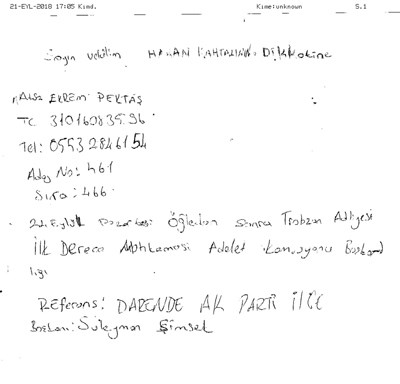 21-EYL-2018 17:05 Kimd. Kime:unknown S.1
Sayın vekilim HAKAN KAHTALI'NIN Dikkatine
EKREM PEKTAŞ
TC 310160835 96
Tel: 0553 2846154
Aday No: 461
Sıra: 466
Eylül Pazartesi Öğleden Sonra Trabzon Adliyesi
İlk Derece Mahkemesi Adalet Komisyonu Başkan
lığı
Referans: DARENDE AK PARTİ İLÇE
Başkanı: Süleyman Şimşek